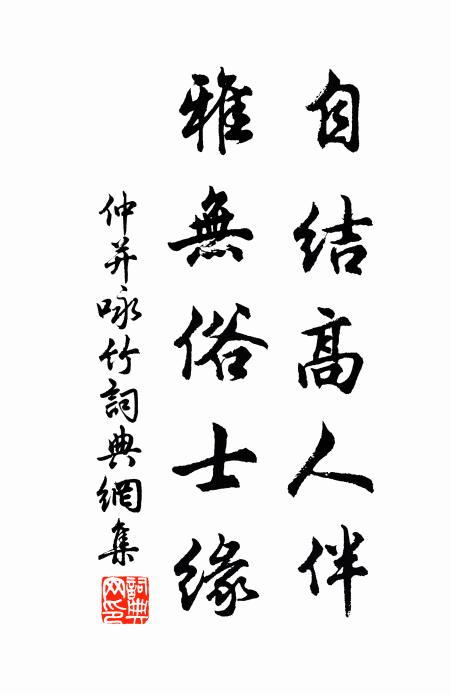 自结高人伴
雅無俗士緣
仲并咏竹詞典網集
詞典網印